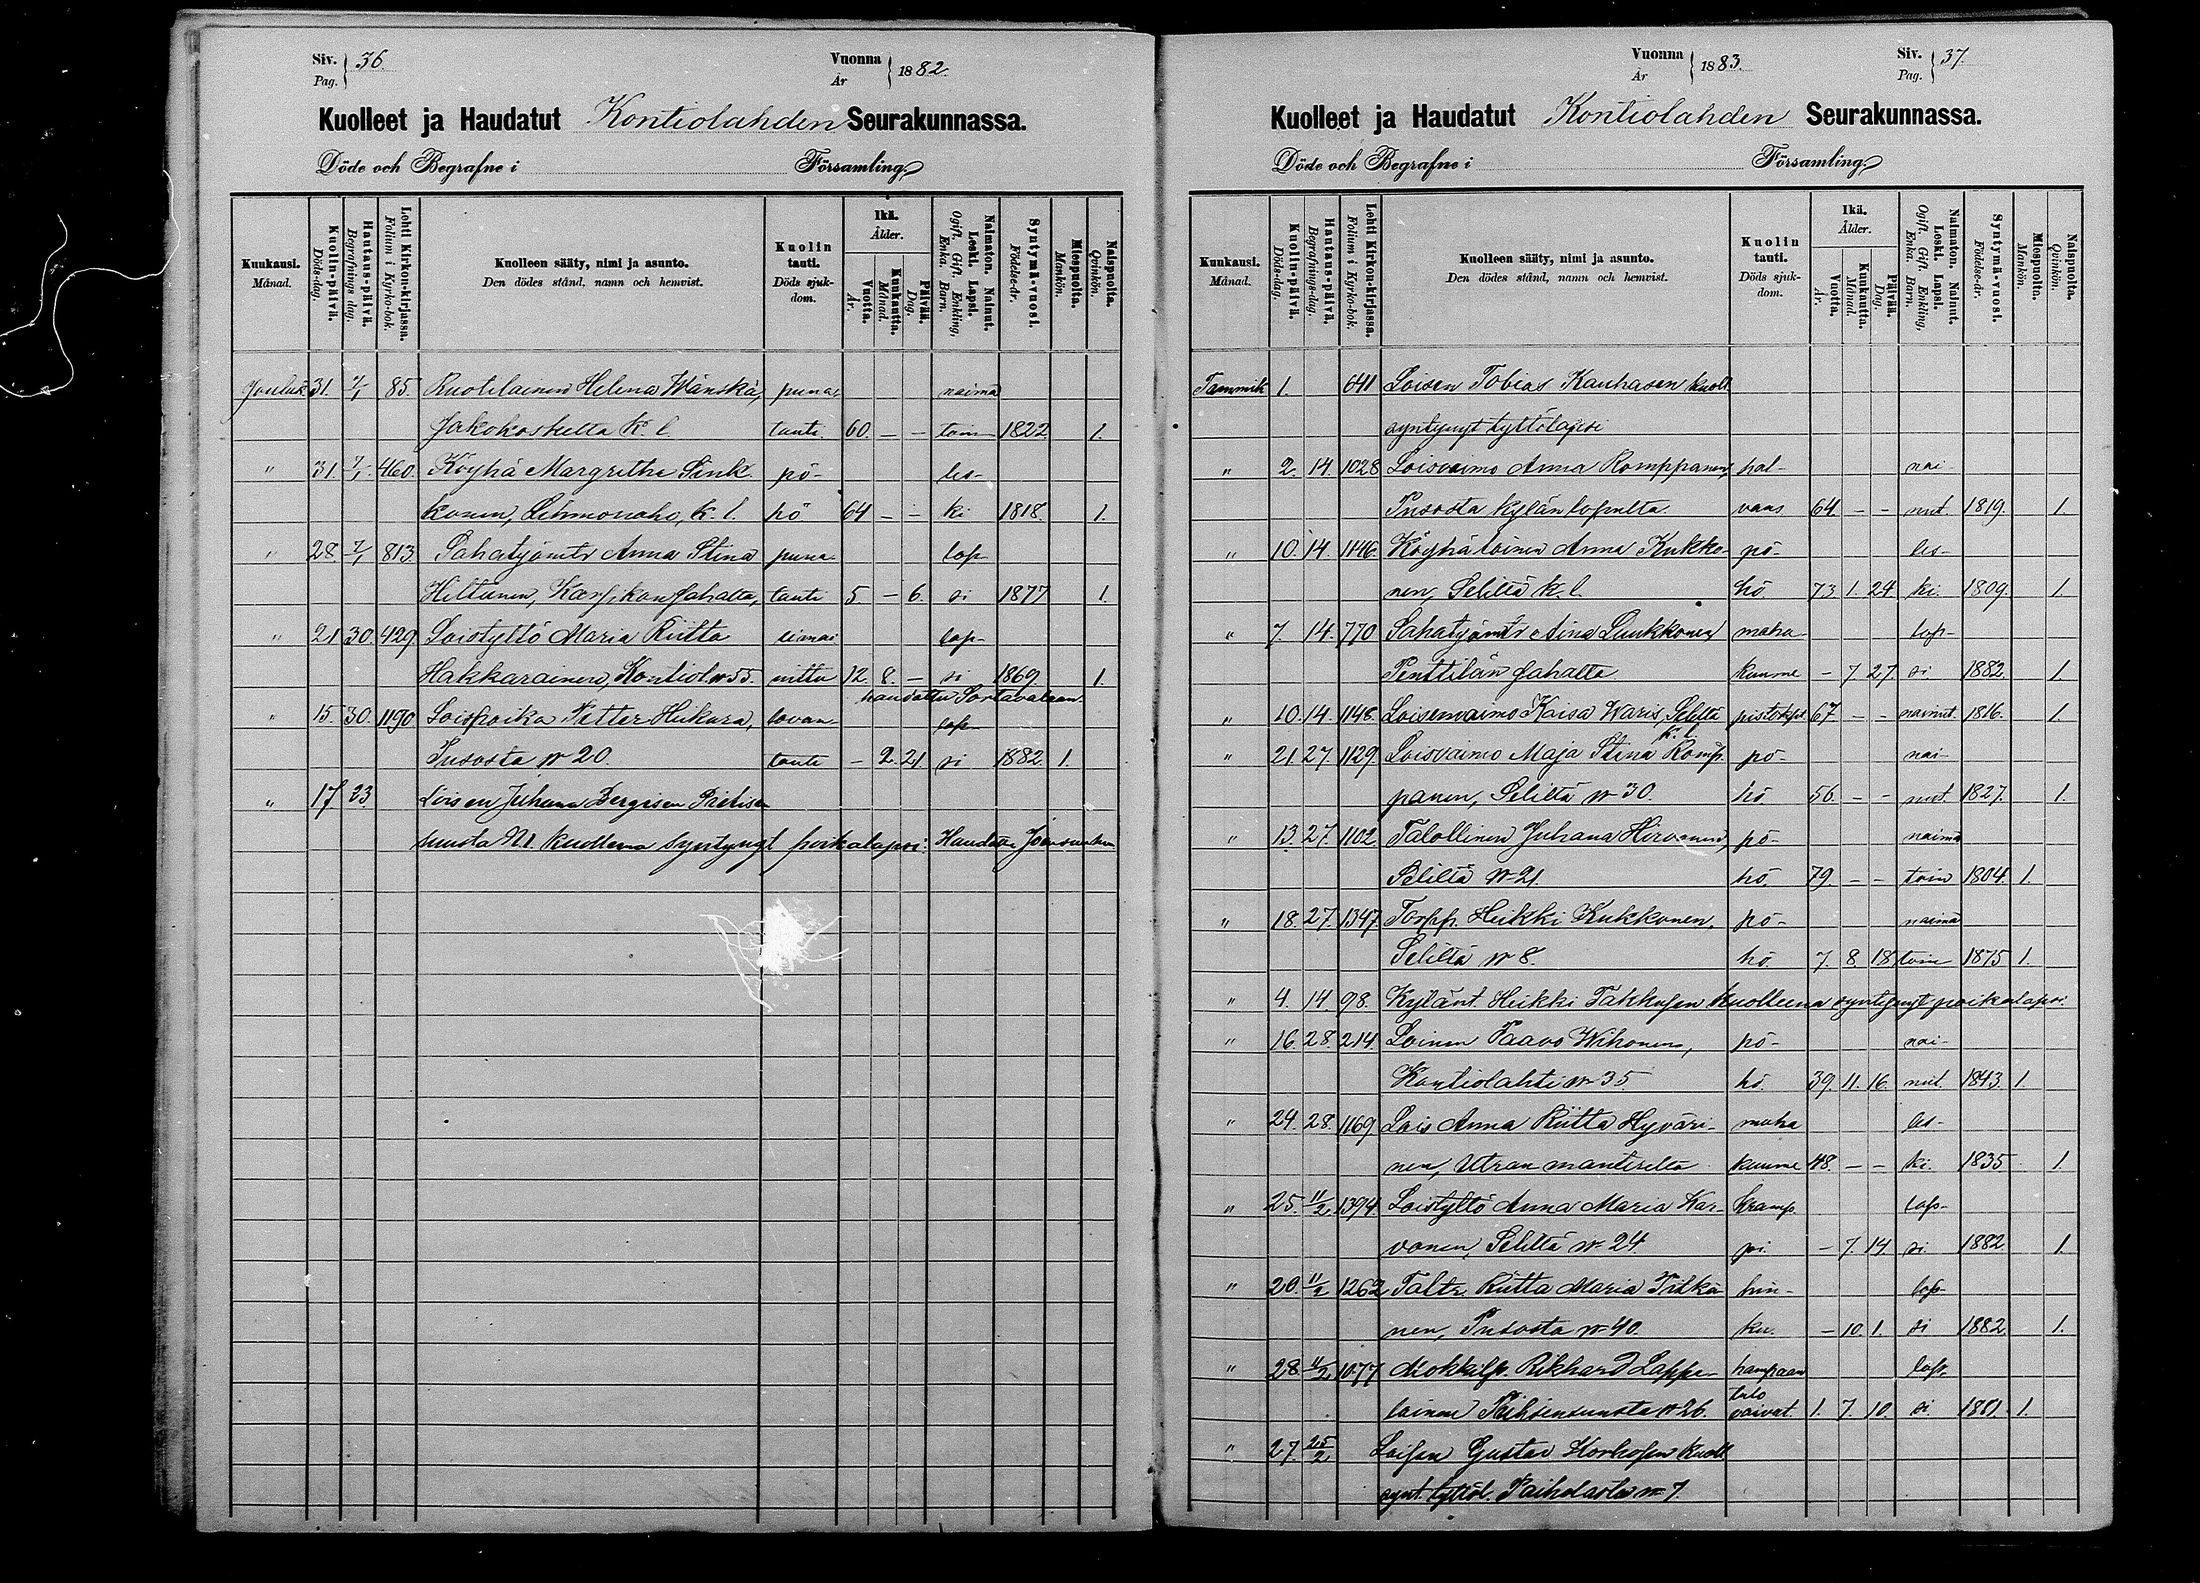 Siv. Pag. 36.
Vuonna År 1882.
Kuolleet ja Haudatut Kontiolahden Seurakunnassa.
Döde och Begrafne i Församling.
Kuukausi. Månad.
Kuolin-päivä. Döds-dag.
Hautaus-päivä. Begrafnings dag.
Lehti Kirkon-kirjassa. Folium i Kyrko-bok.
Kuolleen sääty, nimi ja asunto. Den dödes stånd, namn och hemvist.
Kuolin tauti. Döds sjuk-dom.
Ikä. Ålder.
Vuotta. År.
Kuukautta. Månad.
Päivää. Dag.
Naimaton. Nainut. Leski. Lapsi. Ogift. Gift. Enkling. Enka. Barn.
Syntymä-vuosi. Födelse-år.
Miespuolta. Mankön.
Naispuolta. Qvinkön.
Jouluk. 31. 7/1 85. Ruotilainen Helena Wänskä, puna- naima
Jakokoskelta k. l. tauti. 60. — — toin 1822 1.
" 31. 7/1 460. Köyhä Margretha Sink- pö- les-
konen, Lehmonaho, k. l. hö 64 — — ki 1818. 1.
" 28. 7/1 813. Sahatyömtr Anna Stina puna- lap-
Hiltunen, sahalta, tauti 5. — 6. si 1877 1.
" 21. 30. 429. Loistyttö Maria Riitta lap-
Hakkarainen, Kontiol. № 55. 12. 8. — si 1869. 1.
haudattu Sortavalaan.
" 15. 30. 1190 Loispoika Petter Hukura, lavan- lap-
№ 20. tauti — 2. 21. si 1882. 1.
" 17 23 Loisen Juhana
N1. kuollena syntynyt poikalapsi. Haudatu Joensuuhun
Vuonna År 1883.
Siv. Pag. 37.
Kuolleet ja Haudatut Kontiolahden Seurakunnassa.
Döde och Begrafne i Församling.
Kuukausi. Månad.
Kuolin-päivä. Döds-dag.
Hautaus-päivä. Begrafnings-dag.
Lehti Kirkon-kirjassa. Folium i Kyrko-bok.
Kuolleen sääty, nimi ja asunto. Den dödes stånd, namn och hemvist.
Kuolin tauti. Döds sjuk-dom.
Ikä. Ålder.
Vuotta. År.
Kuukautta. Månad.
Päivää. Dag.
Naimaton. Nainut. Leski. Lapsi. Ogift. Gift. Enkling. Enka. Barn.
Syntymä-vuosi. Födelse-år.
Miespuolta. Mankön.
Naispuolta. Qvinkön.
Tammik 1. 641 Loisen Tobias Kauhasen kuoll.
syntynyt tyttölapsi
" 2. 14. 1028 Loisvaimo Anna Romppanen, hal- nai-
Pusosta kylän lopulta vaus 64 — — nut. 1819. 1.
" 10. 14. 1146. Köyhä loinen Anna Kukko- pö- les-
nen, Seliltä k. l. hö. 73 1. 24. ki. 1809. 1.
" 7. 14. 770 Sahatyömtr Stina Luukkonen maha- lap-
Penttilän sahalta kuume — 7. 27. si 1882 1.
" 10. 14. 1148. Loisenvaimo Kaisa Waris, Seliltä k. l. 67 — — nainut. 1816. 1.
" 21. 27. 1129. Loisvaimo Maja Stina Romp- pö- nai-
panen, Seliltä № 30. hö 56. — — nut. 1827. 1.
" 13. 27. 1102 Talollinen Juhana Hirvonen, pö- naima
Seliltä № 21. hö. 79. — — toin 1804. 1.
" 18. 27. 1347. Torpp. Heikki Kukkonen, pö- naima
Seliltä № 8. hö. 7. 8. 18. toin 1875 1.
" 4. 14. 98. Kylänt. Heikki Takkusen kuolleena syntynyt poikalapsi.
" 16. 28. 214. Loinen Paavo Wihonen, pö- nai-
Kontiolahti № 35 hö. 39. 11. 16. nut. 1843. 1
" 24. 28. 1169 Lois Anna Riitta Hyväri- maha les-
nen, Utran mantereelta kuume 48. — — ki. 1835 1.
" 25. 11/2 1394. Loistyttö Anna Maria Kar- kramp- lap-
vonen, Seliltä № 24 pi — 7. 14. si 1882 1.
" 20. 11/2 1262 Taltr. Riitta Maria Pitkä- hin- lap-
nen, Pusosta № 40. ku. — 10. 1. si 1882 1.
" 28. 11/2 1077 Mökkilp. Rikhard Lappa- hampaan lap-
lainen № 26. tulo vaivat. 1. 7. 10. si. 1881. 1.
" 27. 25/2 Loisen Gustav Korhosen kuoll.
synt. tyttöl. Paiholasta № 7.